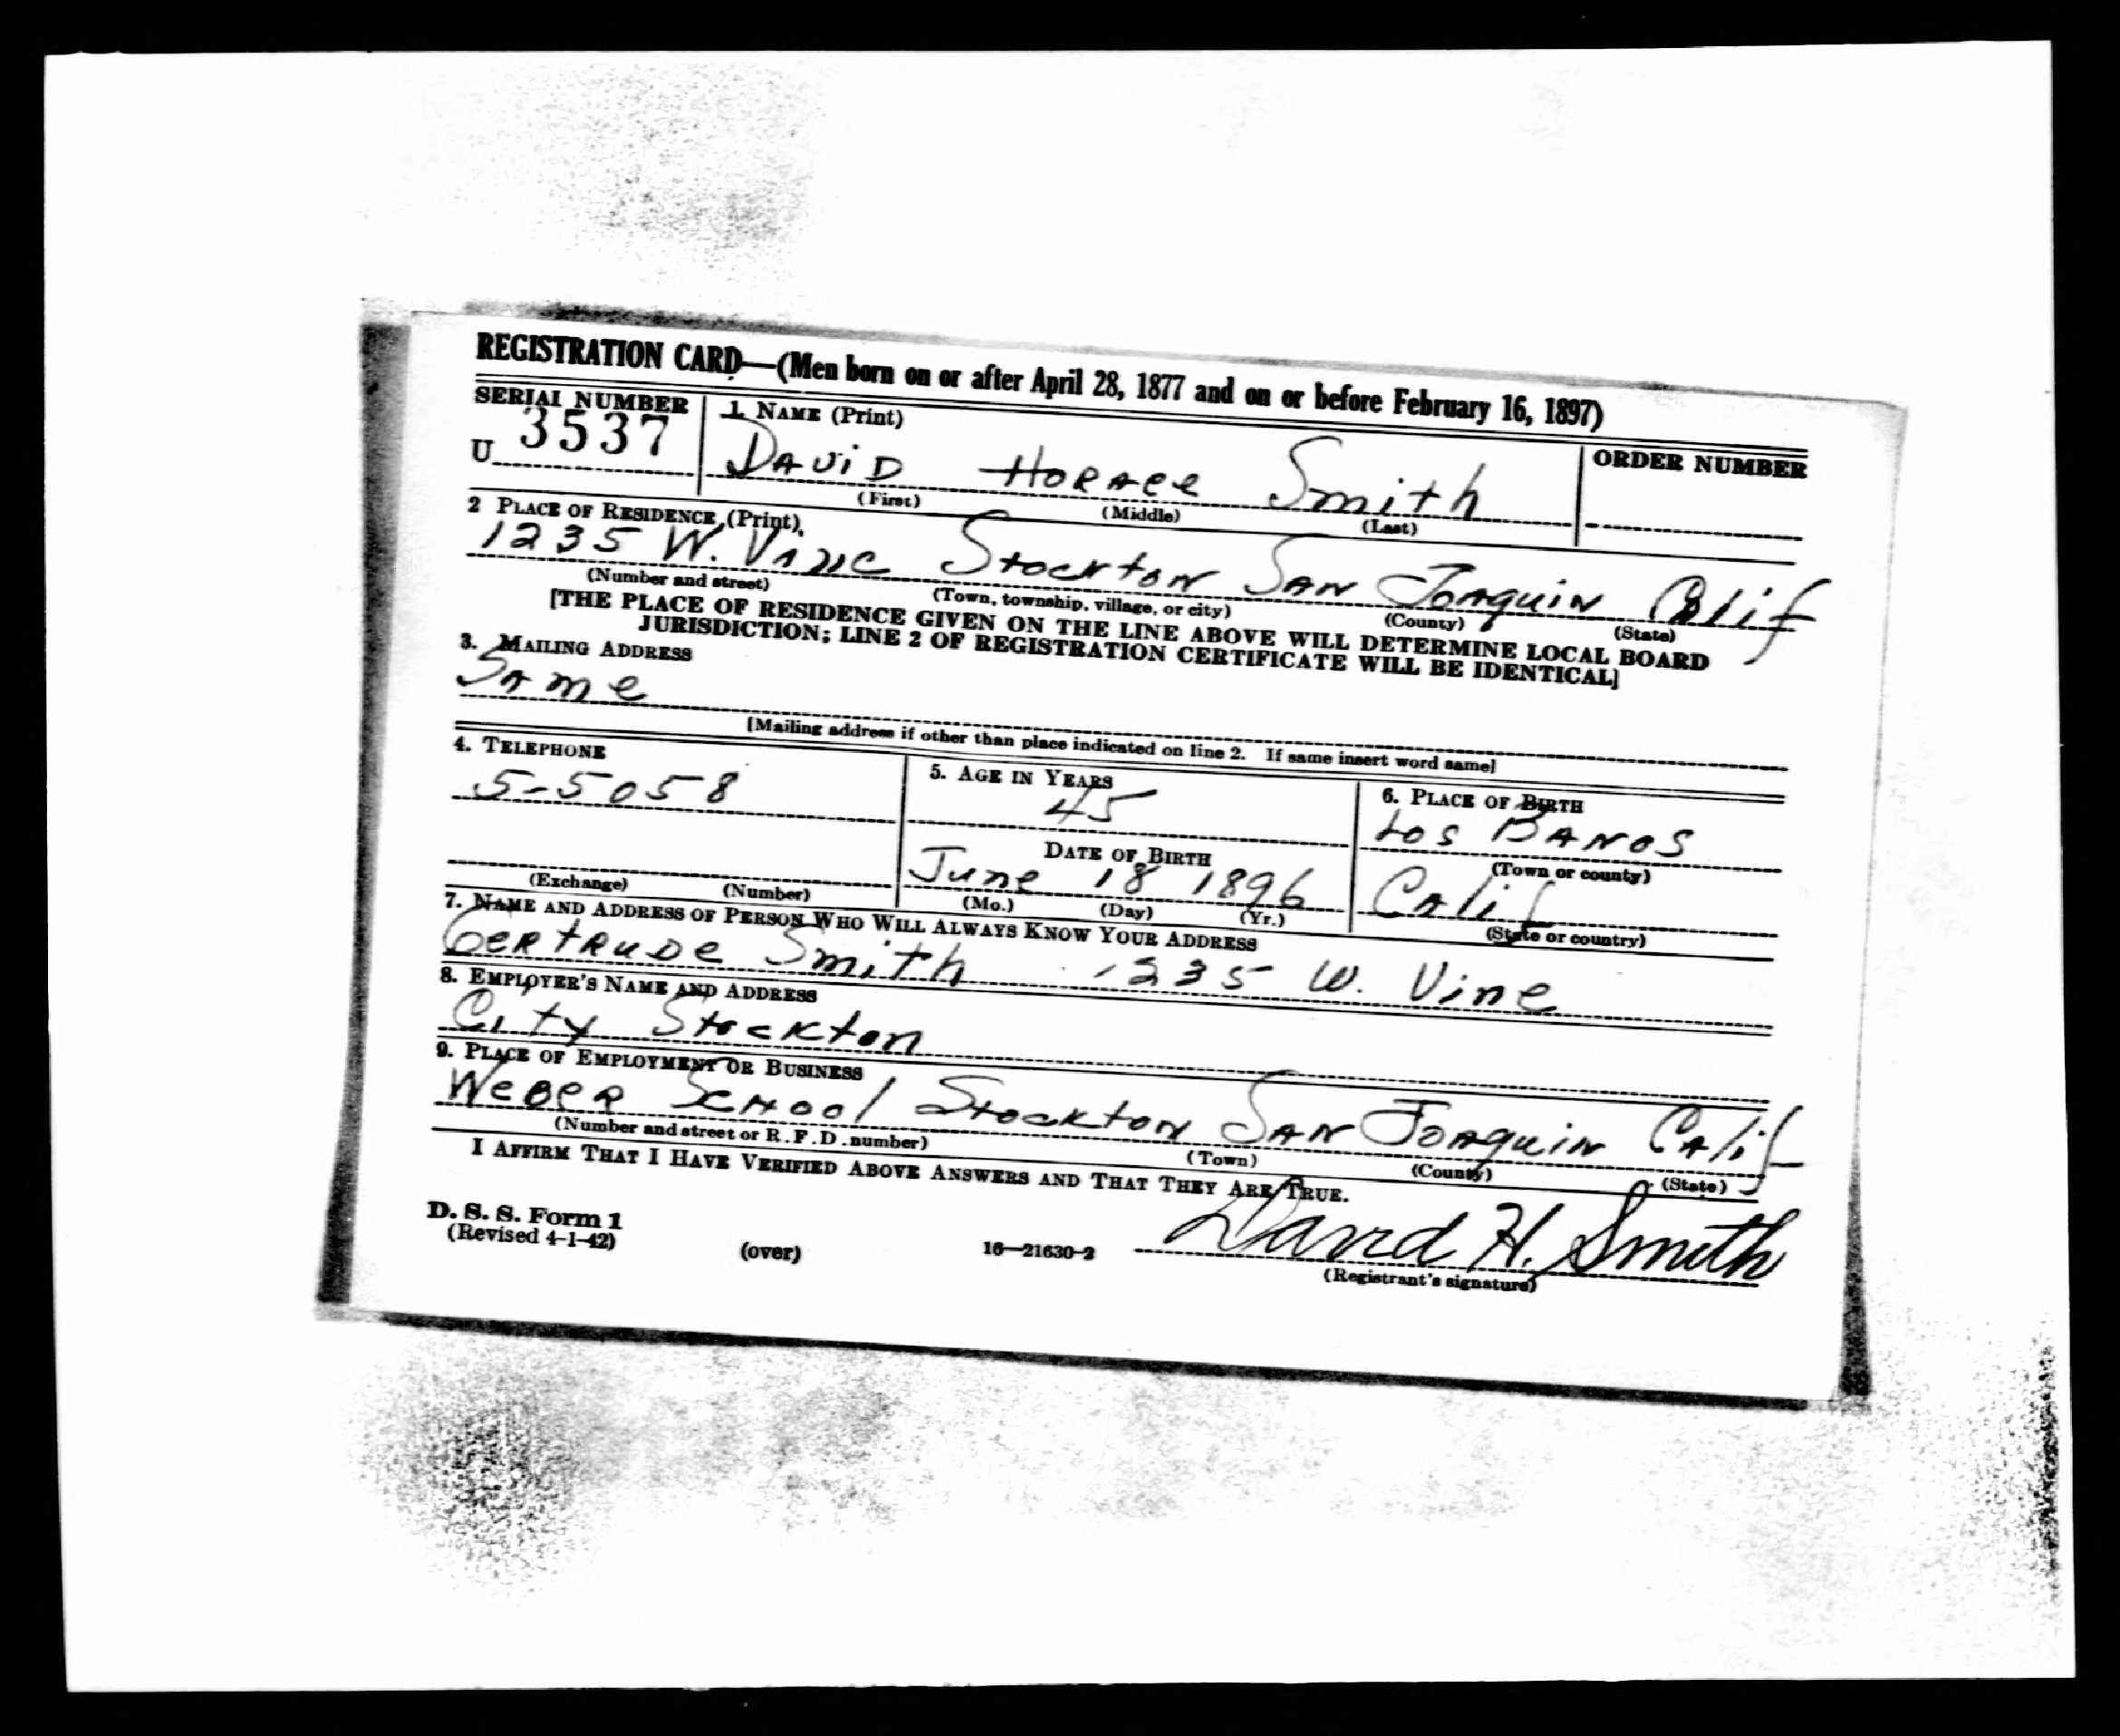 REGISTRATION CARD—(Men born on or after April 28, 1877 and on or before February 16, 1897)
SERIAL NUMBER
1. NAME (Print)
ORDER NUMBER
U 3537
DAViD HORACE Smith
(First) (Middle) (Last)
2 PLACE OF RESIDENCE (Print)
1235 W. Vine Stockton SAN JOAquin Calif
(Number and street) (Town, township, village, or city) (County) (State)
[THE PLACE OF RESIDENCE GIVEN ON THE LINE ABOVE WILL DETERMINE LOCAL BOARD
JURISDICTION; LINE 2 OF REGISTRATION CERTIFICATE WILL BE IDENTICAL]
3. MAILING ADDRESS
Same
[Mailing address if other than place indicated on line 2. If same insert word same]
4. TELEPHONE
5-5058
(Exchange) (Number)
5. AGE IN YEARS
45
DATE OF BIRTH
June 18 1896
(Mo.) (Day) (Yr.)
6. PLACE OF BIRTH
Los BANOS
(Town or county)
CAlif
(State or country)
7. NAME AND ADDRESS OF PERSON WHO WILL ALWAYS KNOW YOUR ADDRESS
GeRtRuDe Smith 1235 W. Vine
8. EMPLOYER'S NAME AND ADDRESS
City Stockton
9. PLACE OF EMPLOYMENT OR BUSINESS
WeBeR School Stockton SAN JOAquin CAlif
(Number and street or R. F. D. number) (Town) (County) (State)
I AFFIRM THAT I HAVE VERIFIED ABOVE ANSWERS AND THAT THEY ARE TRUE.
D. S. S. Form 1
(Revised 4-1-42) (over) 16—21630-2
David H. Smith
(Registrant's signature)